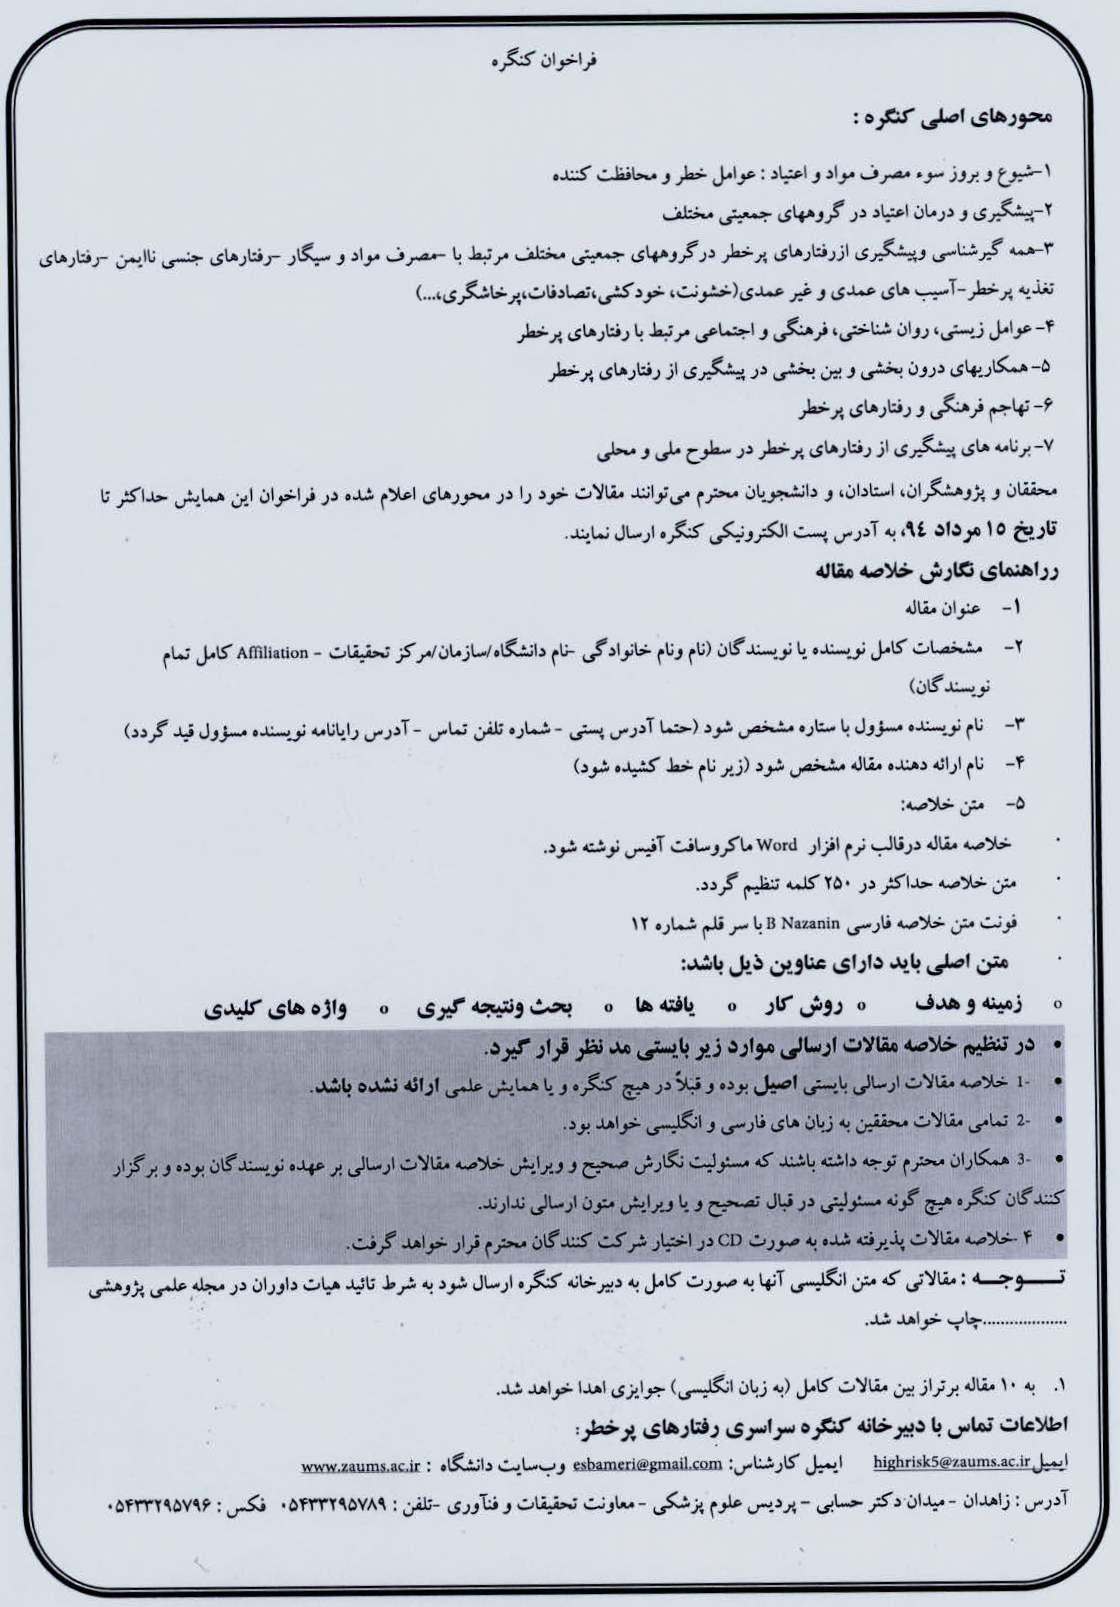 فراخوان کنگره
محورهای اصلی کنگره :
۱-شیوع و بروز سوء مصرف مواد و اعتیاد : عوامل خطر و محافظت کننده
۲-پیشگیری و درمان اعتیاد در گروههای جمعیتی مختلف
۳-همه گیرشناسی وپیشگیری ازرفتارهای پرخطر درگروههای جمعیتی مختلف مرتبط با -مصرف مواد و سیگار -رفتارهای جنسی ناایمن -رفتارهای
تغذیه پرخطر-آسیب های عمدی و غیر عمدی(خشونت، خودکشی،تصادفات،پرخاشگری،...)
۴- عوامل زیستی، روان شناختی، فرهنگی و اجتماعی مرتبط با رفتارهای پرخطر
۵- همکاریهای درون بخشی و بین بخشی در پیشگیری از رفتارهای پرخطر
۶- تهاجم فرهنگی و رفتارهای پرخطر
۷- برنامه های پیشگیری از رفتارهای پرخطر در سطوح ملی و محلی
محققان و پژوهشگران، استادان، و دانشجویان محترم می‌توانند مقالات خود را در محورهای اعلام شده در فراخوان این همایش حداکثر تا
تاریخ ١٥ مرداد ٩٤، به آدرس پست الکترونیکی کنگره ارسال نمایند.
رراهنمای نگارش خلاصه مقاله
۱- عنوان مقاله
۲- مشخصات کامل نویسنده یا نویسندگان (نام ونام خانوادگی -نام دانشگاه/سازمان/مرکز تحقیقات - Affiliation کامل تمام
نویسندگان)
۳- نام نویسنده مسؤول با ستاره مشخص شود (حتما آدرس پستی - شماره تلفن تماس - آدرس رایانامه نویسنده مسؤول قید گردد)
۴- نام ارائه دهنده مقاله مشخص شود (زیر نام خط کشیده شود)
۵- متن خلاصه:
· خلاصه مقاله درقالب نرم افزار Word ماکروسافت آفیس نوشته شود.
· متن خلاصه حداکثر در ۲۵۰ کلمه تنظیم گردد.
· فونت متن خلاصه فارسی B Nazanin با سر قلم شماره ۱۲
· متن اصلی باید دارای عناوین ذیل باشد:
o زمینه و هدف o روش کار o یافته ها o بحث ونتیجه گیری o واژه های کلیدی
• در تنظیم خلاصه مقالات ارسالی موارد زیر بایستی مد نظر قرار گیرد.
• 1- خلاصه مقالات ارسالی بایستی اصیل بوده و قبلاً در هیچ کنگره و یا همایش علمی ارائه نشده باشد.
• 2- تمامی مقالات محققین به زبان های فارسی و انگلیسی خواهد بود.
• 3- همکاران محترم توجه داشته باشند که مسئولیت نگارش صحیح و ویرایش خلاصه مقالات ارسالی بر عهده نویسندگان بوده و برگزار
کنندگان کنگره هیچ گونه مسئولیتی در قبال تصحیح و یا ویرایش متون ارسالی ندارند.
• ۴ -خلاصه مقالات پذیرفته شده به صورت CD در اختیار شرکت کنندگان محترم قرار خواهد گرفت.
تـــــوجـــه : مقالاتی که متن انگلیسی آنها به صورت کامل به دبیرخانه کنگره ارسال شود به شرط تائید هیات داوران در مجله علمی پژوهشی
...................چاپ خواهد شد.
۱. به ۱۰ مقاله برتراز بین مقالات کامل (به زبان انگلیسی) جوایزی اهدا خواهد شد.
اطلاعات تماس با دبیرخانه کنگره سراسری رفتارهای پرخطر:
ایمیل highrisk5@zaums.ac.ir ایمیل کارشناس: esbameri@gmail.com وب‌سایت دانشگاه : www.zaums.ac.ir
آدرس : زاهدان - میدان دکتر حسابی - پردیس علوم پزشکی - معاونت تحقیقات و فنآوری -تلفن : ۰۵۴۳۳۲۹۵۷۸۹ فکس : ۰۵۴۳۳۲۹۵۷۹۶